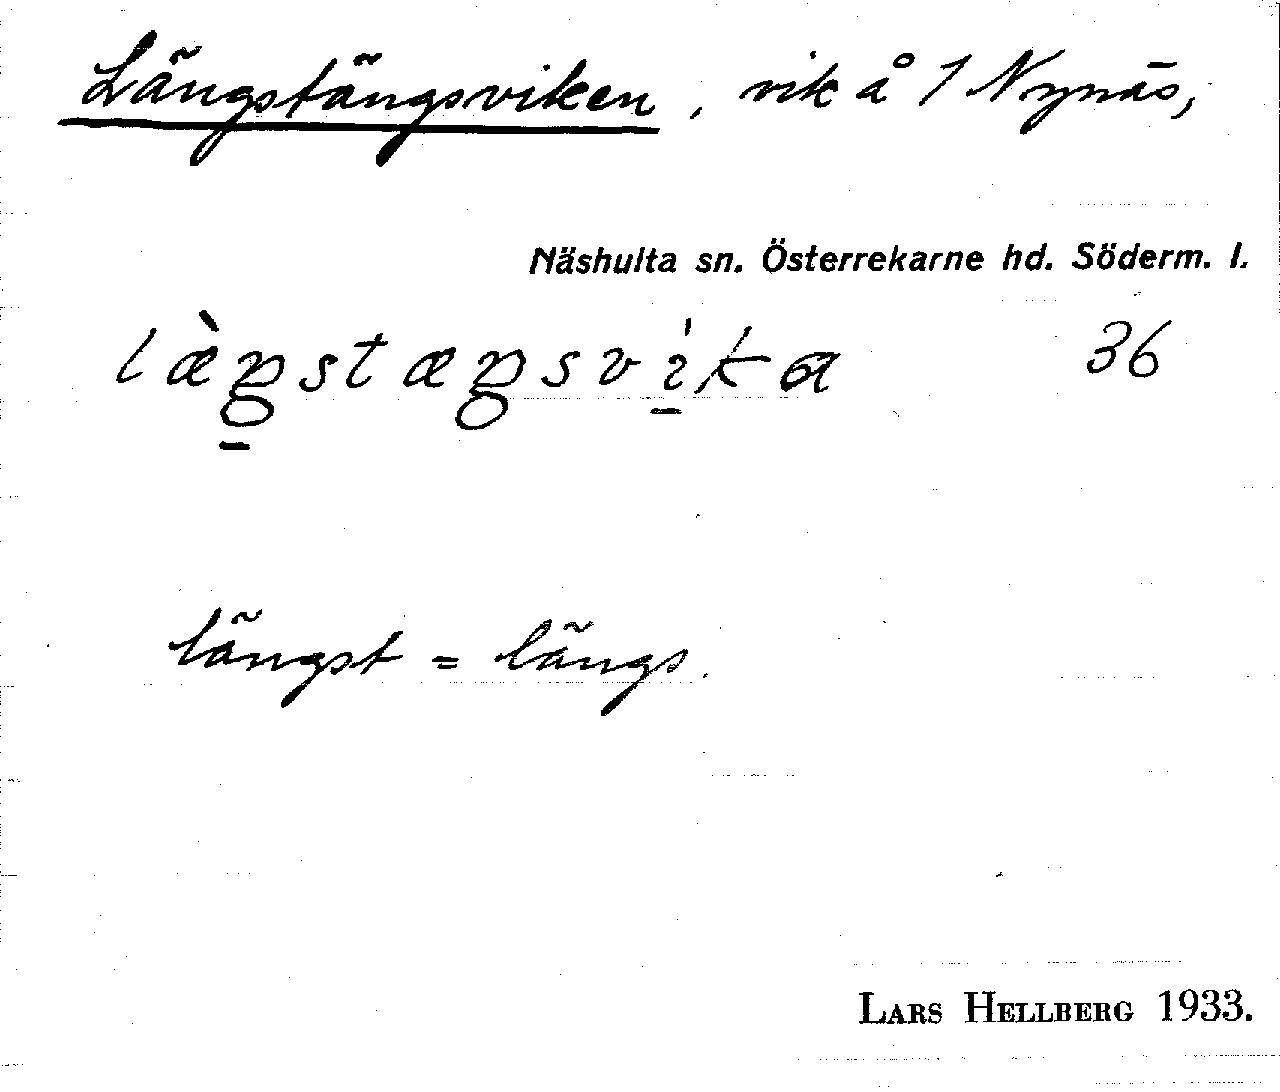 Längstängsviken, vik å 1 Nynäs,
Näshulta sn. Österrekarne hd. Söderm. l.
læ̀ŋ̲stæŋsvi̲ka 36
längst = längs.
LARS HELLBERG 1933.